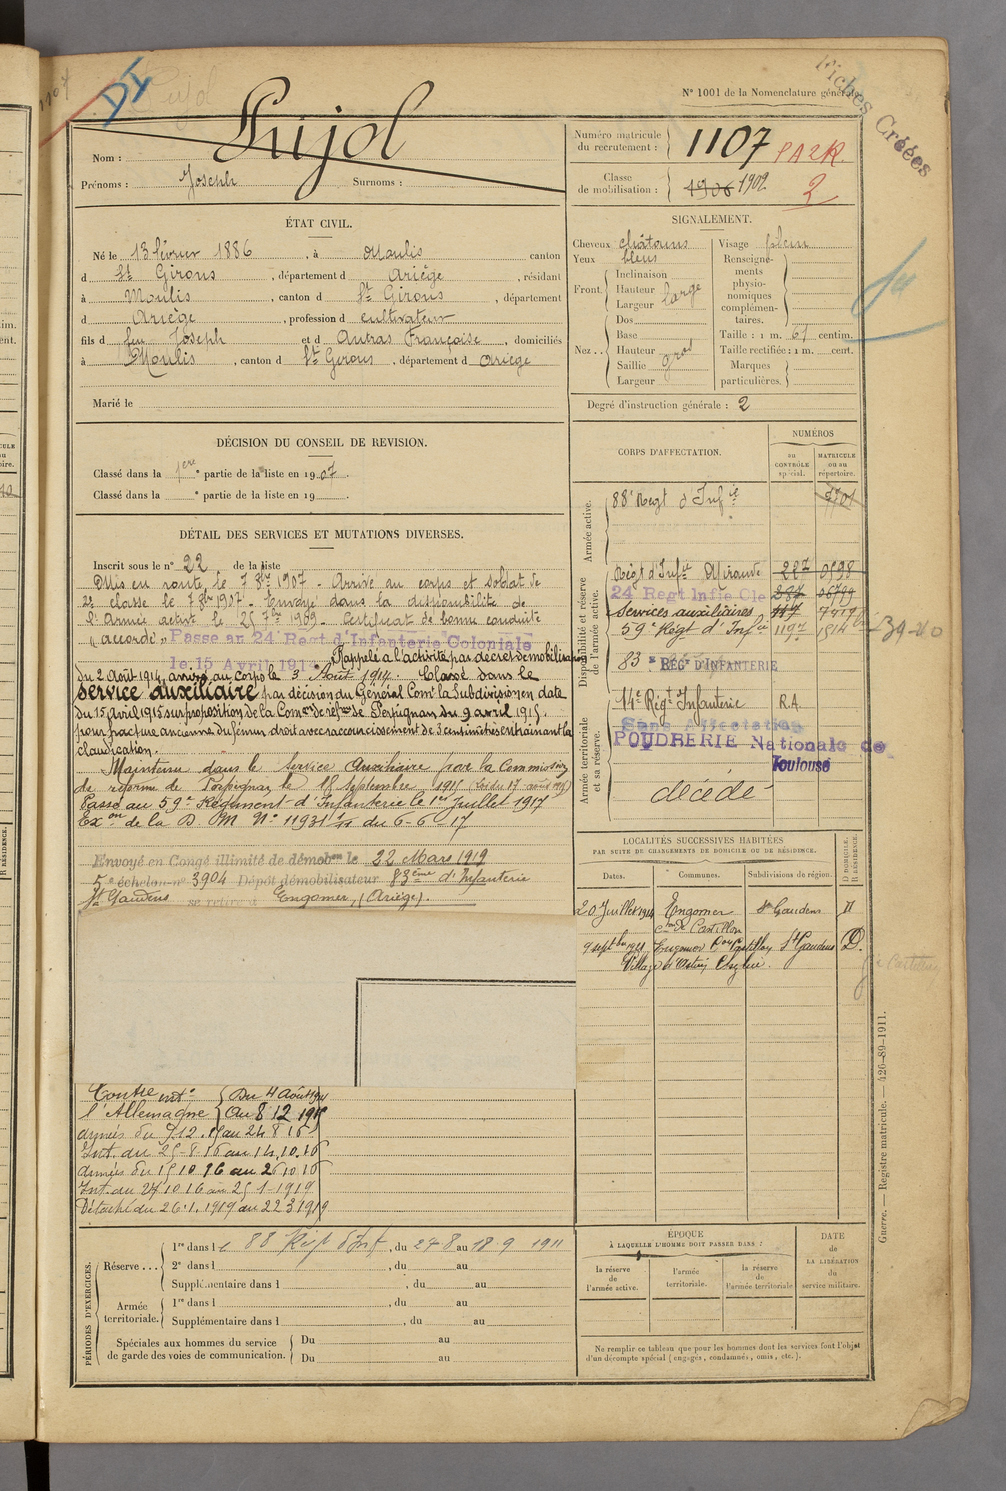 N° 1001 de la Nomenclature générale.
Fiches Créées
Nom : Pujol
Prénoms : Joseph Surnoms :
Numéro matricule du recrutement : 1107
Classe de mobilisation : 1906 1902
2
ÉTAT CIVIL.
Né le 13 février 1886, à Moulis canton
d St Girons, département d Ariège, résidant
à Moulis, canton d St Girons, département
d Ariège, profession d cultivateur
fils d feu Joseph et d Autras Françoise, domiciliés
à Moulis, canton d St Girons, département d Ariège
Marié le
SIGNALEMENT.
Cheveux châtains
Yeux bleus
Front. Inclinaison
Hauteur
Largeur large
Nez.. Dos
Base
Hauteur
Saillie gros
Largeur
Visage plein
Renseignements physionomiques complémentaires.
Taille : 1 m. 61 centim.
Taille rectifiée : 1 m. cent.
Marques particulières.
Degré d'instruction générale : 2
DÉCISION DU CONSEIL DE REVISION.
Classé dans la 1ere partie de la liste en 1907.
Classé dans la e partie de la liste en 19
DÉTAIL DES SERVICES ET MUTATIONS DIVERSES.
Inscrit sous le n° 22 de la liste
Mis en route le 7 8bre 1907. Arrivé au corps et soldat de
2e classe le 7 8bre 1907. Envoyé dans la disponibilité de
l'Armée active le 25 7bre 1909. Certificat de bonne conduite
"accordé". Passé au 24 Regt d'Infanterie Coloniale
le 15 Avril 191 Rappelé à l'activité par décret de mobilisation
du 2 Août 1914, arrivé au corps le 3 Août 1914. Classé dans le
service auxiliaire par décision du Général Comt la Subdivision en date
du 15 Avril 1915 sur proposition de la Comon de réfme de Perpignan du 9 avril 1915.
pour fracture ancienne du fémur droit avec raccourcissement de 3 centimètres entraînant la
claudication.
Maintenu dans le Service Auxiliaire par la Commission
de réforme de Perpignan le 18 septembre 1915 (Loi du 17 août 1915)
Passé au 59e Régiment d'Infanterie le 1er Juillet 1917
Exon de la D. M. N° 11931 1/11 du 6-6-17
Envoyé en Congé illimité de démobon le 22 Mars 1919
5e échelon n° 3904 Dépôt démobilisateur 83ème d'Infanterie
St Gaudens se retire à Engomer, (Ariège).
Contre l'Allemagne Du 4 Août 1914
Au 8 12 1915
armées du 9.12.15 au 24 8 16
Int. du 25-8-16 au 14.10.16
armées du 15 10 16 au 26 10 16
Int. du 27 10 16 au 25-1-1919
Détaché du 26.1.1919 au 22 3 1919
CORPS D'AFFECTATION.
NUMÉROS
au CONTRÔLE spécial.
MATRICULE ou au répertoire.
Armée active.
88e Regt d'Infie
Disponibilité et réserve de l'armée active.
Régt d'Infie Mirande 227
24 Regt Infie Cle
Services auxiliaires
59e Régt d'Infie
83e REGt D'INFANTERIE
Armée territoriale et sa réserve.
14e Régt Infanterie R.A.
Sans Affectation
POUDRERIE Nationale de
Toulouse
décédé
LOCALITÉS SUCCESSIVES HABITÉES
PAR SUITE DE CHANGEMENTS DE DOMICILE OU DE RÉSIDENCE.
Dates. Communes. Subdivisions de région. D DOMICILE. R RÉSIDENCE.
20 Juillet 1914 Engomer St Gaudens D
con de Castillon
9 septbre 1921 Engomer Con Castillon St Gaudens D.
PÉRIODES D'EXERCICES.
Réserve... 1re dans le 88 Regt d'Inf, du 27 8 au 18 9 1911
2e dans l , du au
Supplémentaire dans l , du au
Armée territoriale. 1re dans l , du au
Supplémentaire dans l , du au
Spéciales aux hommes du service de garde des voies de communication. Du au
Du au
ÉPOQUE
À LAQUELLE L'HOMME DOIT PASSER DANS :
la réserve de l'armée active.
l'armée territoriale.
la réserve de l'armée territoriale
DATE de LA LIBÉRATION du service militaire.
Ne remplir ce tableau que pour les hommes dont les services font l'objet
d'un décompte spécial (engagés, condamnés, omis, etc.).
Guerre. — Registre matricule. — 426-89-1911.